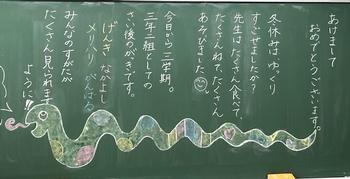 あけまして
おめでとうございます。
冬休みは ゆっくり
すごせましたか？
先生は たくさん食べて、
たくさんねて、たくさん
あそびました
今日から三学期。
三年二組としての
さい後のがっきです。
げんき なかよし
メリハリ がんばる
みんなのすがたが
たくさん見られます
ように!!